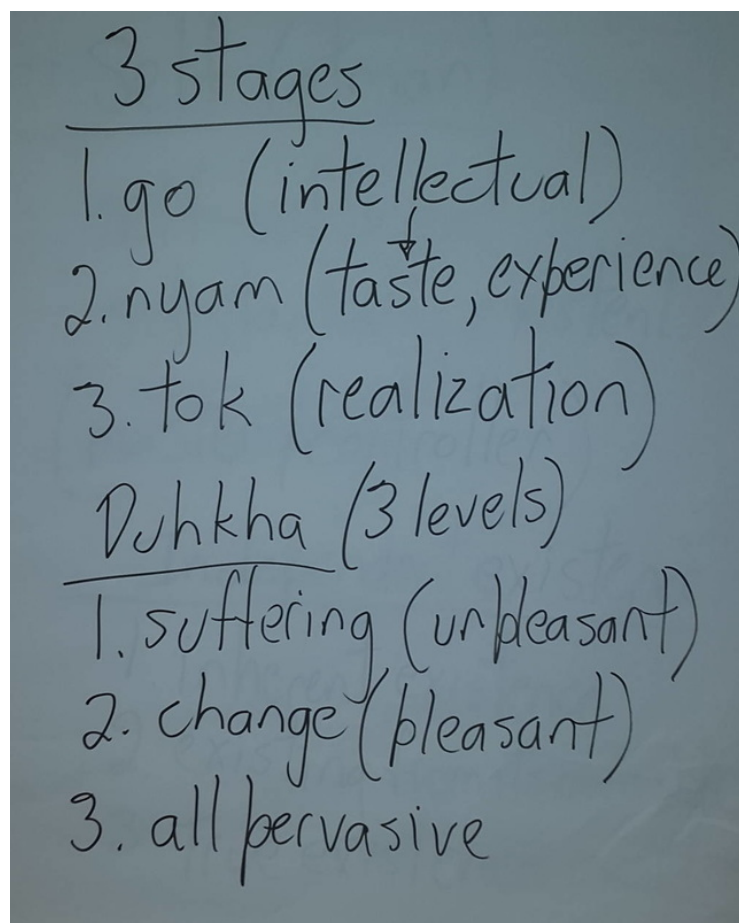 3 stages
1. go (intellectual)
2. nyam (taste, experience)
3. tok (realization)
Duhkha (3 levels)
1. suffering (unpleasant)
2. change (pleasant)
3. all pervasive